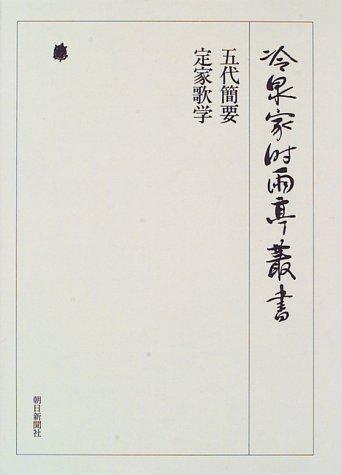 冷泉家时雨亭叢書
五代簡要
定家歌学
朝日新聞社